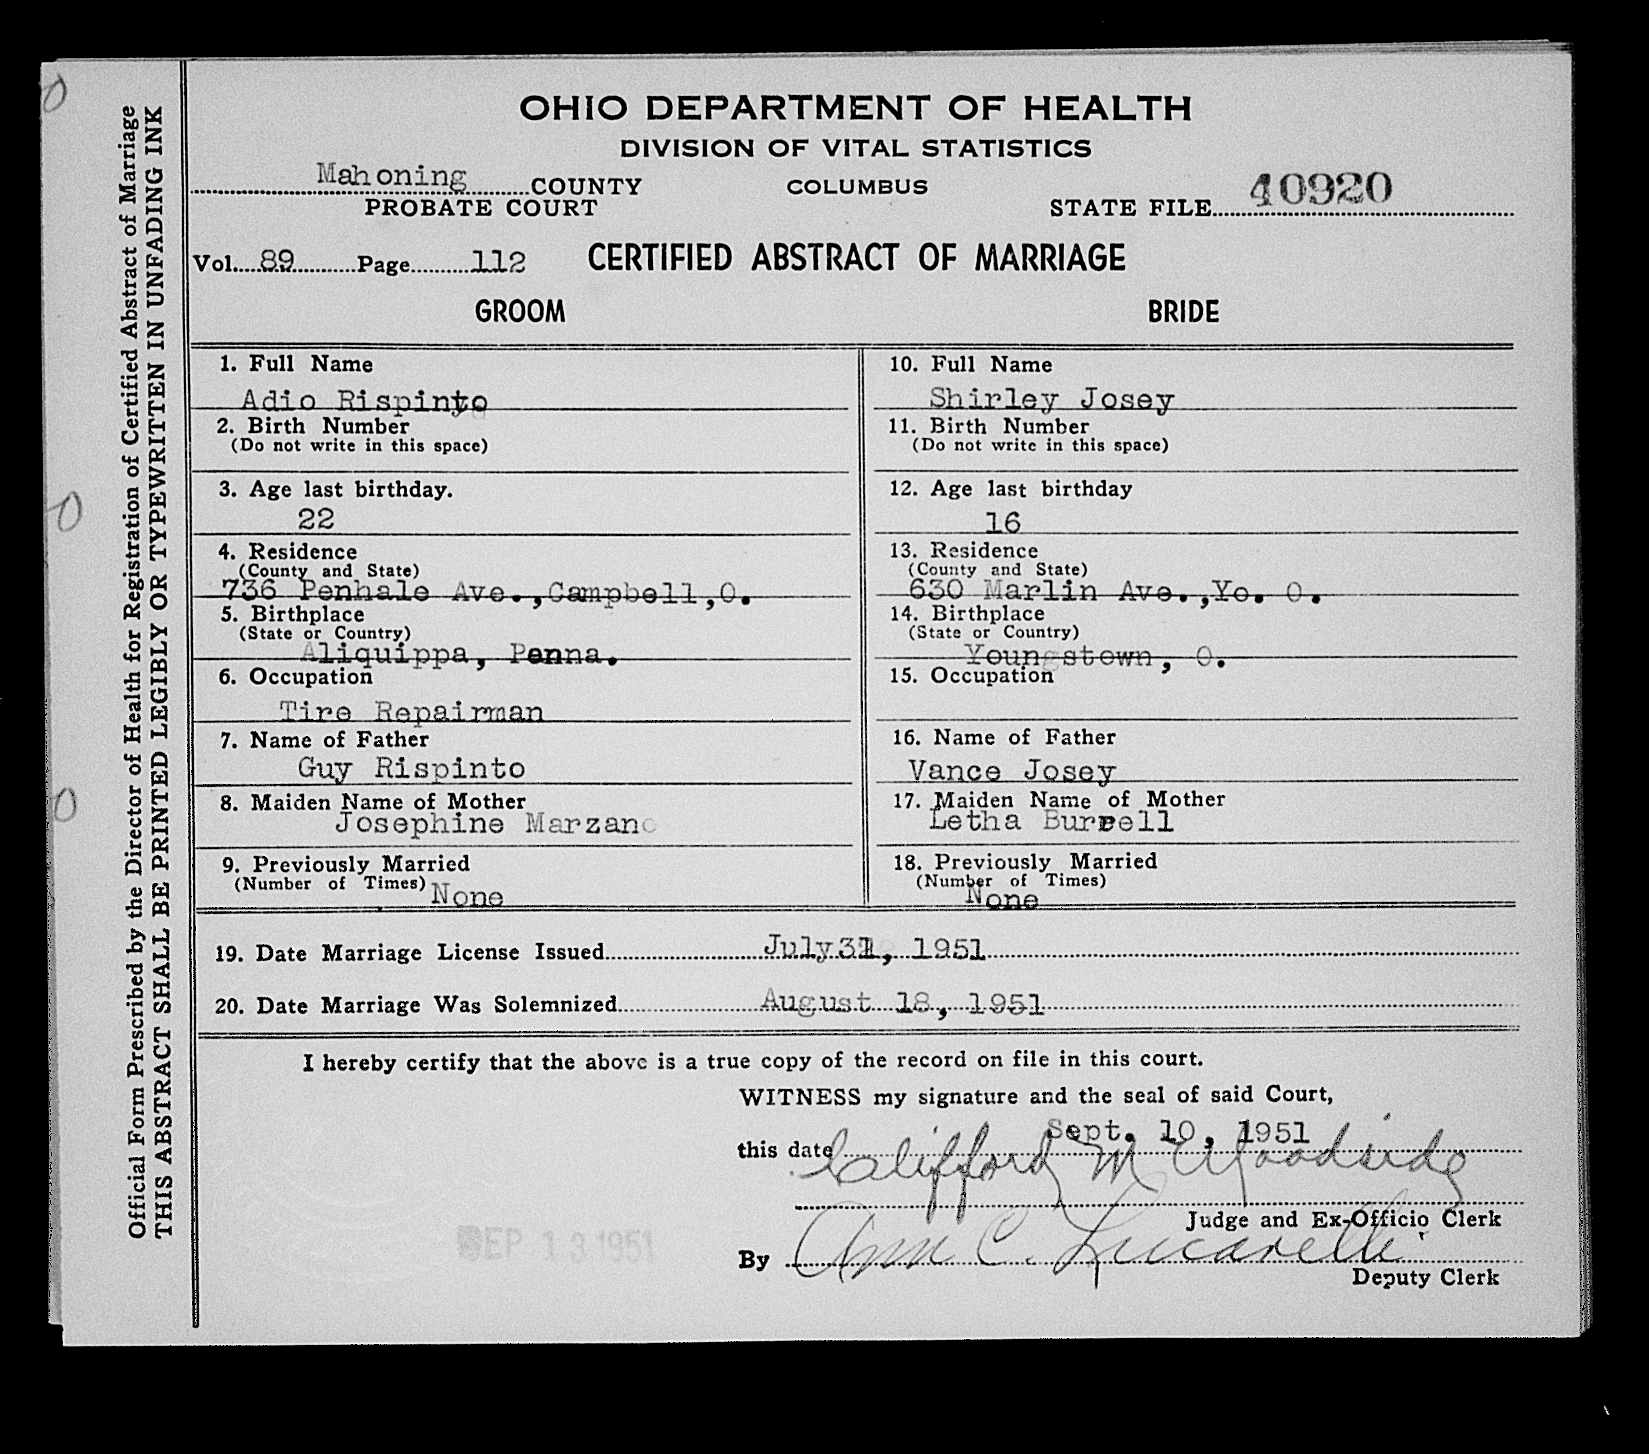 OHIO DEPARTMENT OF HEALTH
DIVISION OF VITAL STATISTICS
Mahoning COUNTY
COLUMBUS
PROBATE COURT
STATE FILE 40920
Vol. 89 Page 112
CERTIFIED ABSTRACT OF MARRIAGE
GROOM
BRIDE
1. Full Name
Adio Rispinto
2. Birth Number
(Do not write in this space)
3. Age last birthday.
22
4. Residence
(County and State)
736 Penhale Ave.,Campbell,O.
5. Birthplace
(State or Country)
Aliquippa, Penna.
6. Occupation
Tire Repairman
7. Name of Father
Guy Rispinto
8. Maiden Name of Mother
Josephine Marzano
9. Previously Married
(Number of Times) None
10. Full Name
Shirley Josey
11. Birth Number
(Do not write in this space)
12. Age last birthday
16
13. Residence
(County and State)
630 Marlin Ave.,Yo. O.
14. Birthplace
(State or Country)
Youngstown, O.
15. Occupation
16. Name of Father
Vance Josey
17. Maiden Name of Mother
Letha Burrell
18. Previously Married
(Number of Times)
None
19. Date Marriage License Issued July 31, 1951
20. Date Marriage Was Solemnized August 18, 1951
I hereby certify that the above is a true copy of the record on file in this court.
WITNESS my signature and the seal of said Court,
this date Sept. 10, 1951
Clifford M Woodside
Judge and Ex-Officio Clerk
SEP 13 1951
By Ann C. Lucarelli
Deputy Clerk
Official Form Prescribed by the Director of Health for Registration of Certified Abstract of Marriage
THIS ABSTRACT SHALL BE PRINTED LEGIBLY OR TYPEWRITTEN IN UNFADING INK